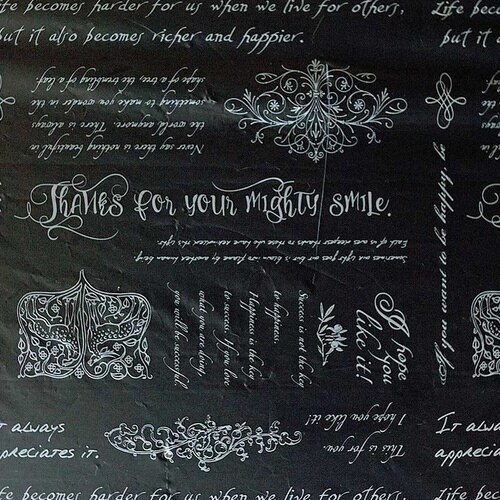 Life becomes harder for us when we live for others,
but it also becomes richer and happier.
Life bec
but it a
Never say there is nothing beautiful in
the world anymore. There is always
something to make you wonder in the
shape of a tree the trembling of a leaf.
Thanks for your mighty smile.
Sometimes our light goes out but is blown into flame by another human being.
Each of us owes deepest thanks to those who have
this light.
Success is not the key
to happiness.
Happiness is the key
to success. If you love
what you are doing,
you will be successful.
I hope
you
like it!
If you want to be happy, be
This is for you.
I hope you like it!
t always
preciates it.
It always
appreciat
fe becomes harder for us when we live for others,
Life bec